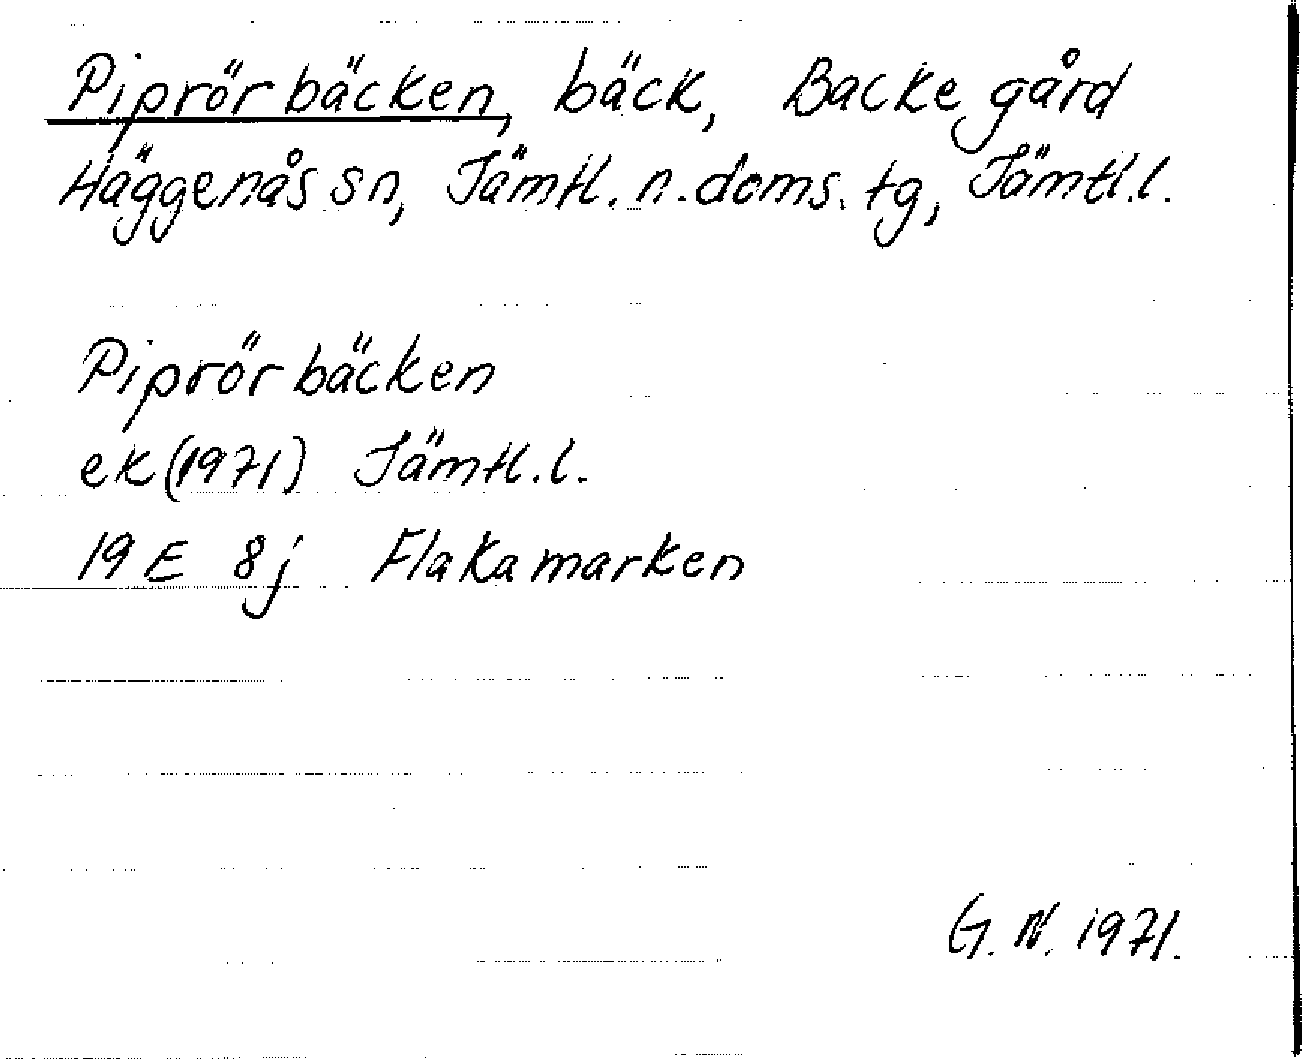 Piprörbäcken, bäck, Backe gård
Häggenås sn, Jämtl. n. doms. tg, Jämtl. l.
Piprörbäcken
ek (1971) Jämtl. l.
19 E 8j Flakamarken
G. N. 1971.